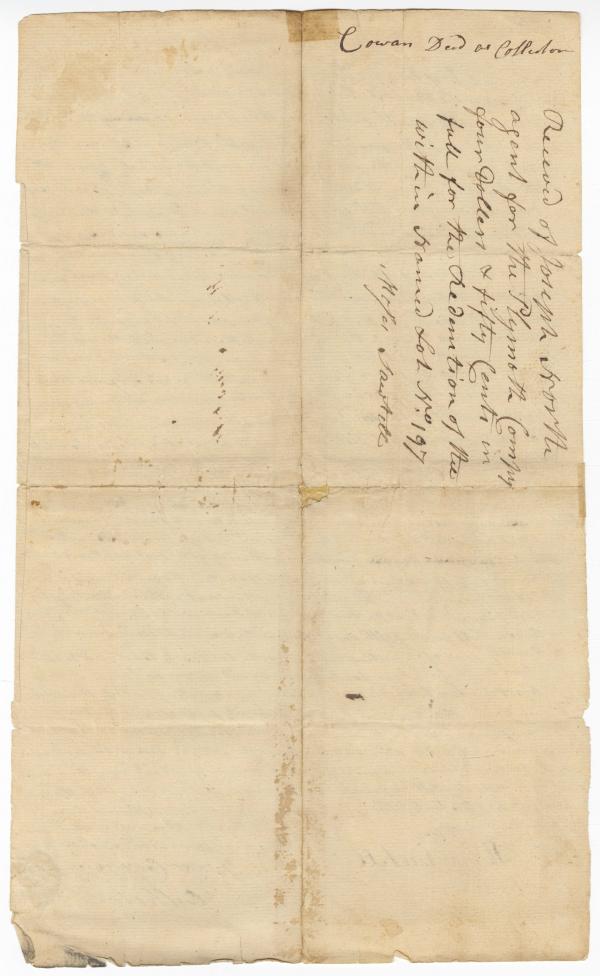 Cowan Deed as Collector
Received of Joseph North
agent for the Plymoth Compy
four Dollers & fifty Cents in
full for the Redemtion of the
within Named Lot No. 197
Moses Sawtell